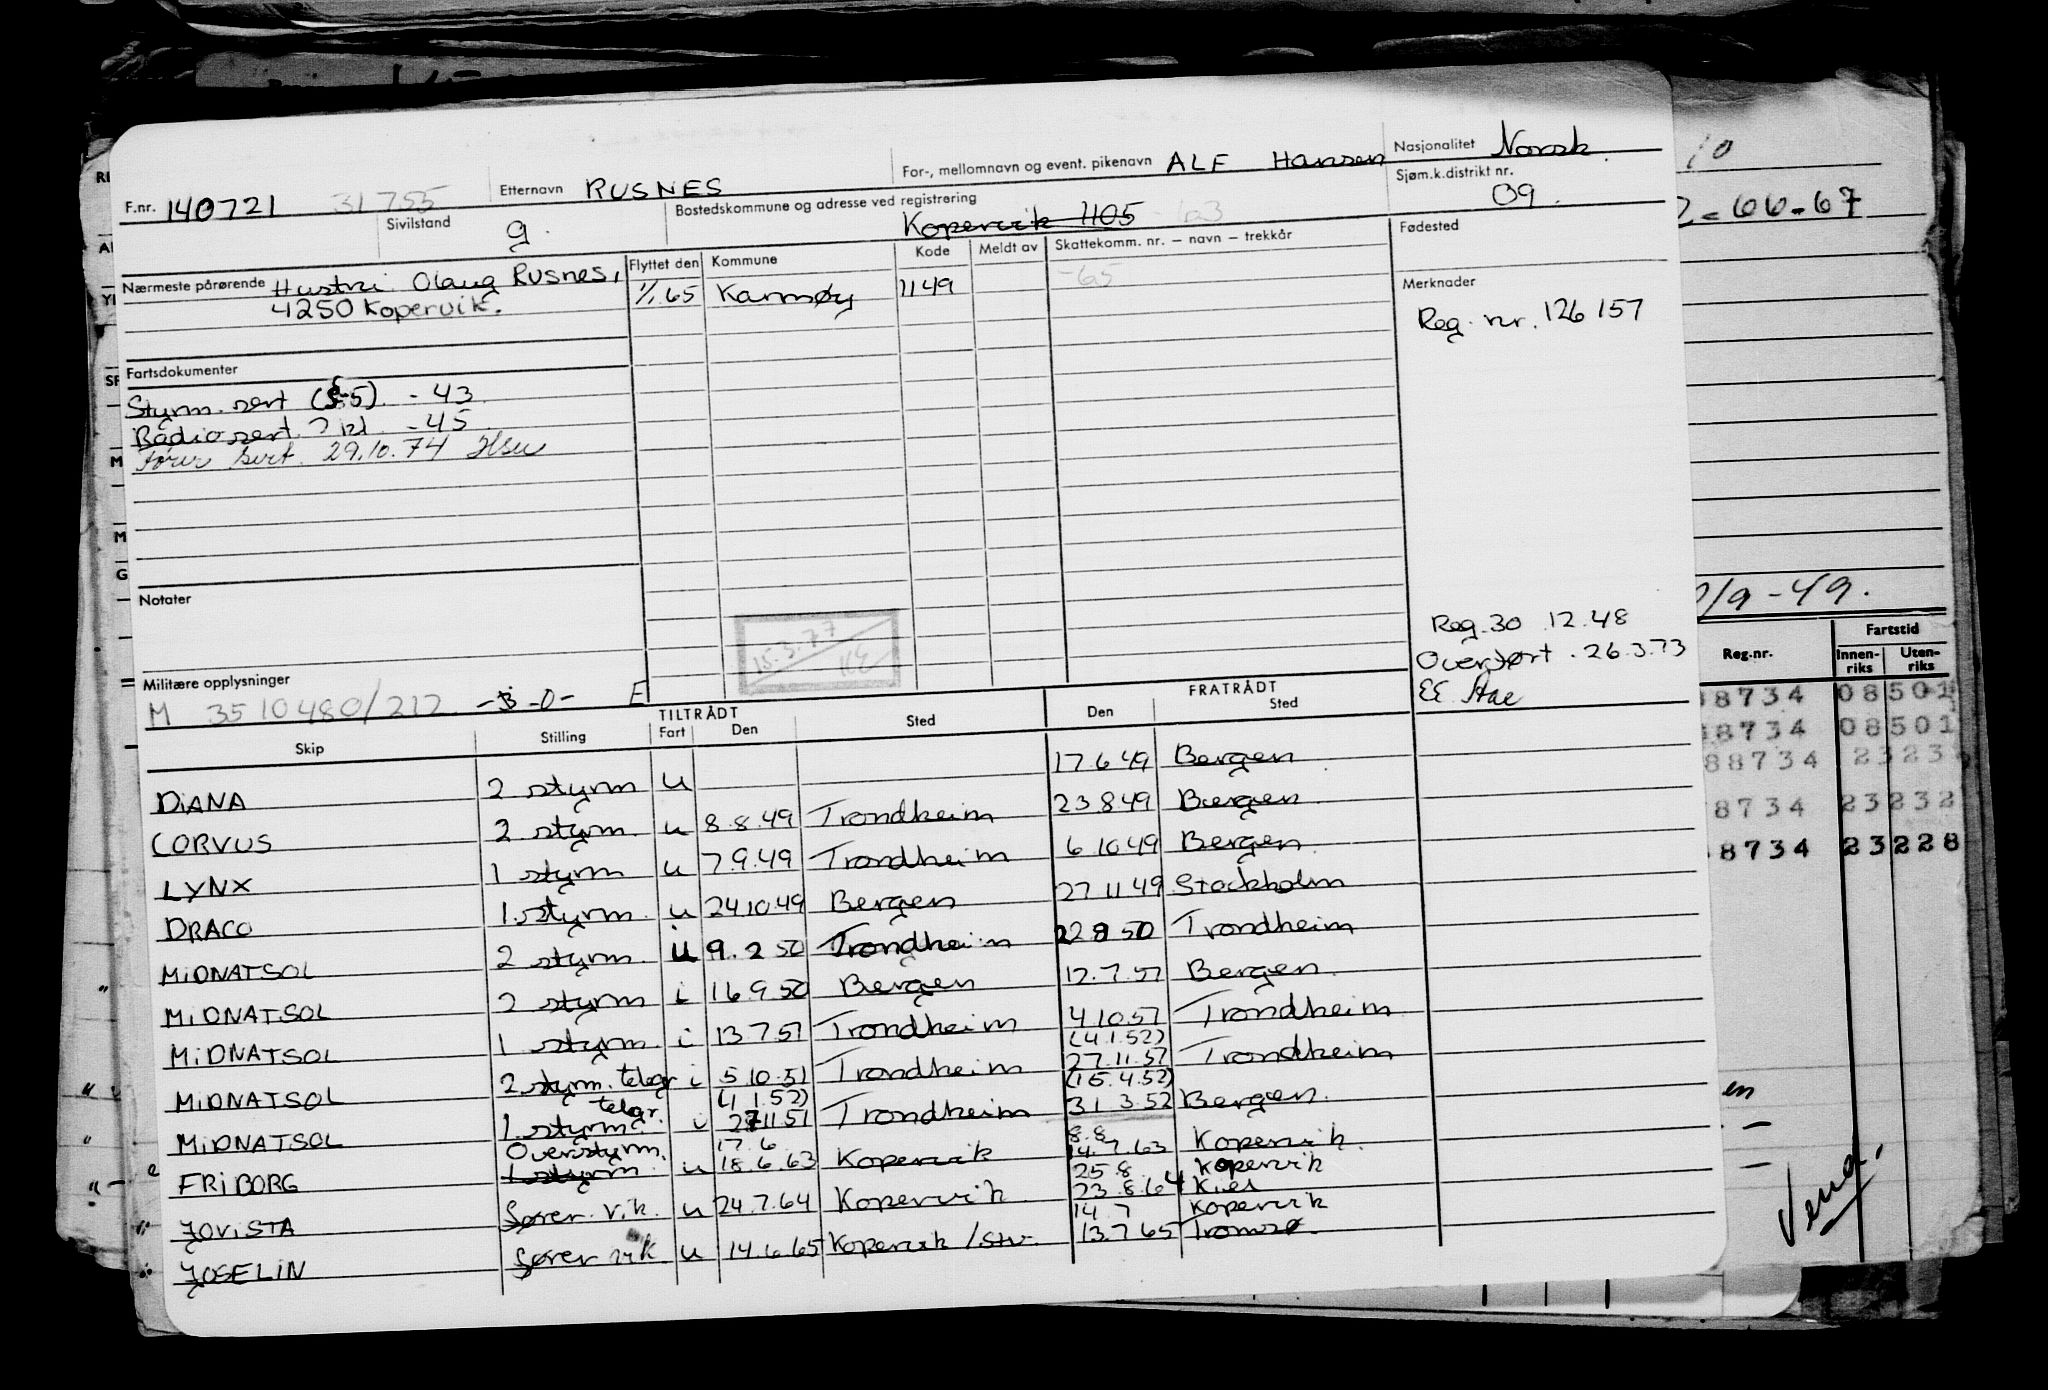 F.nr. 140721 31755 Etternavn RUSNES For-, mellomnavn og event. pikenavn ALF Hansen Nasjonalitet Norsk.
Sivilstand g. Bostedskommune og adresse ved registrering Kopervik 1105 -63 Sjøm.k.distrikt nr. 09.
Nærmeste pårørende Hustru Olaug Rusnes,
4250 Kopervik.
Flyttet den Kommune Kode Meldt av Skattekomm. nr. – navn – trekkår
1/1.65 Karmøy 1149 -65
Fødested
Merknader
Reg. nr. 126157
Fartsdokumenter
Styrm. sert (§5). -43.
Radiosert. 2 kl. -45.
Fører sert. 29.10.74
Notater
15.3.77
Reg. 30.12.48
Overført. 26.3.73
Militære opplysninger
M 3510480/212 -0- E
TILTRÅDT FRATRÅDT
Skip Stilling Fart Den Sted Den Sted
DIANA 2 styrm u 17.6.49 Bergen
CORVUS 2 styrm. u 8.8.49 Trondheim 23.8.49 Bergen
LYNX 1 styrm u 7.9.49 Trondheim 6.10.49 Bergen
DRACO 1. styrm. u 24.10.49 Bergen 27.11.49 Stockholm
MIDNATSOL 2 styrm. i 9.2.50 Trondheim 22.8.50 Trondheim
MIDNATSOL 2 styrm i 16.9.50 Bergen 12.7.51 Bergen.
MIDNATSOL 1 styrm. i 13.7.51 Trondheim 4.10.51 Trondheim
MIDNATSOL 2 styrm. telegr i 5.10.51 Trondheim (4.1.52) 27.11.51 Trondheim
MIDNATSOL 1. styrm telgr. i (1.1.52) 27.11.51 Trondheim (15.4.52) 31.3.52 Bergen.
FRIBORG Overstyrm. 1 styrm. u 17.6 18.6.63 Kopervik 8.8 14.7.63 Kopervik.
JOVISTA fører. vik. u 24.7.64 Kopervik 25.8 Kopervik 23.8.64 Kiel
JOSELIN fører vik u 14.6.65 Kopervik / 14.7 Kopervik 13.7.65 Tromsø.
10
-66-67
/9-49.
Reg.nr. Fartstid
Innen-riks Uten-riks
8734 08 501
8734 08 501
88734 23 23
8734 23 232
8734 23 228
en